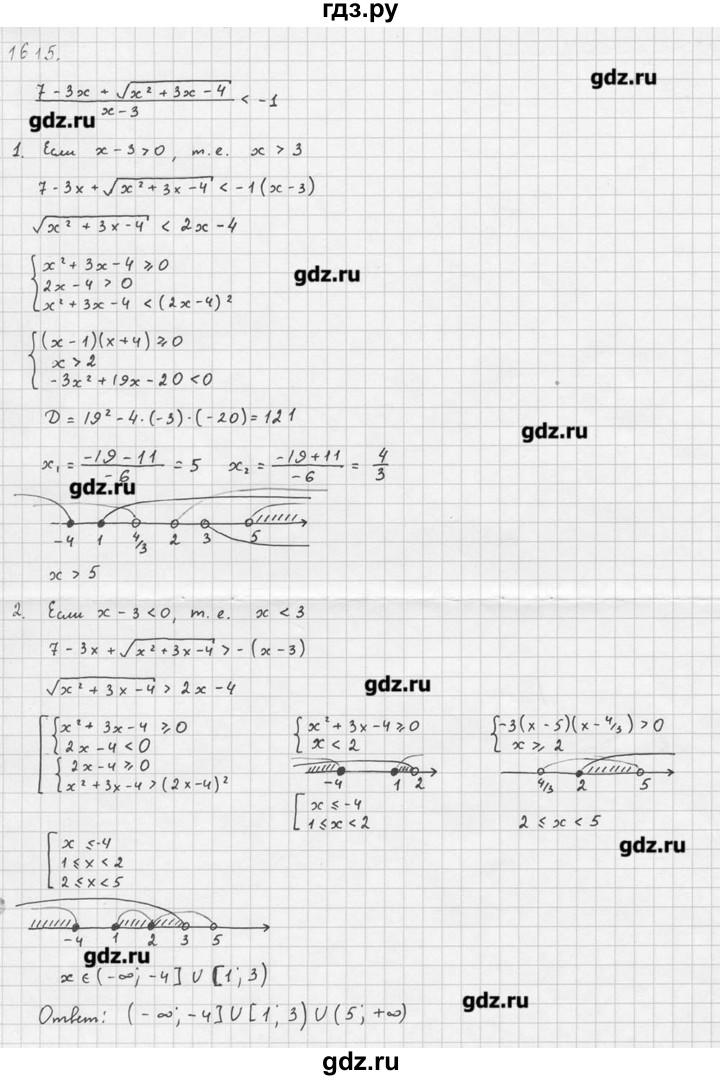 гдз.ру
1615.
(7 - 3x + √(x² + 3x - 4)) / (x - 3) < -1
gdz.ru
gdz.ru
1. Если x - 3 > 0, т.е. x > 3
7 - 3x + √(x² + 3x - 4) < -1(x - 3)
√(x² + 3x - 4) < 2x - 4
{ x² + 3x - 4 ⩾ 0
2x - 4 > 0
gdz.ru
x² + 3x - 4 < (2x - 4)²
{ (x - 1)(x + 4) ⩾ 0
x > 2
-3x² + 19x - 20 < 0
D = 19² - 4·(-3)·(-20) = 121
gdz.ru
x₁ = (-19 - 11) / -6 = 5   x₂ = (-19 + 11) / -6 = 4/3
gdz.ru
-4 1 4/3 2 3 5
x > 5
2. Если x - 3 < 0, т.е. x < 3
7 - 3x + √(x² + 3x - 4) > -(x - 3)
√(x² + 3x - 4) > 2x - 4
gdz.ru
[ { x² + 3x - 4 ⩾ 0
2x - 4 < 0
{ 2x - 4 ⩾ 0
x² + 3x - 4 > (2x - 4)²
{ x² + 3x - 4 ⩾ 0
x < 2
-4 1 2
[ x ⩽ -4
1 ⩽ x < 2
{ -3(x - 5)(x - 4/3) > 0
x ⩾ 2
4/3 2 5
2 ⩽ x < 5
gdz.ru
[ x ⩽ -4
1 ⩽ x < 2
2 ⩽ x < 5
-4 1 2 3 5
gdz.ru
x ∈ (-∞; -4] ∪ [1; 3)
gdz.ru
Ответ: (-∞; -4] ∪ [1; 3) ∪ (5; +∞)
gdz.ru